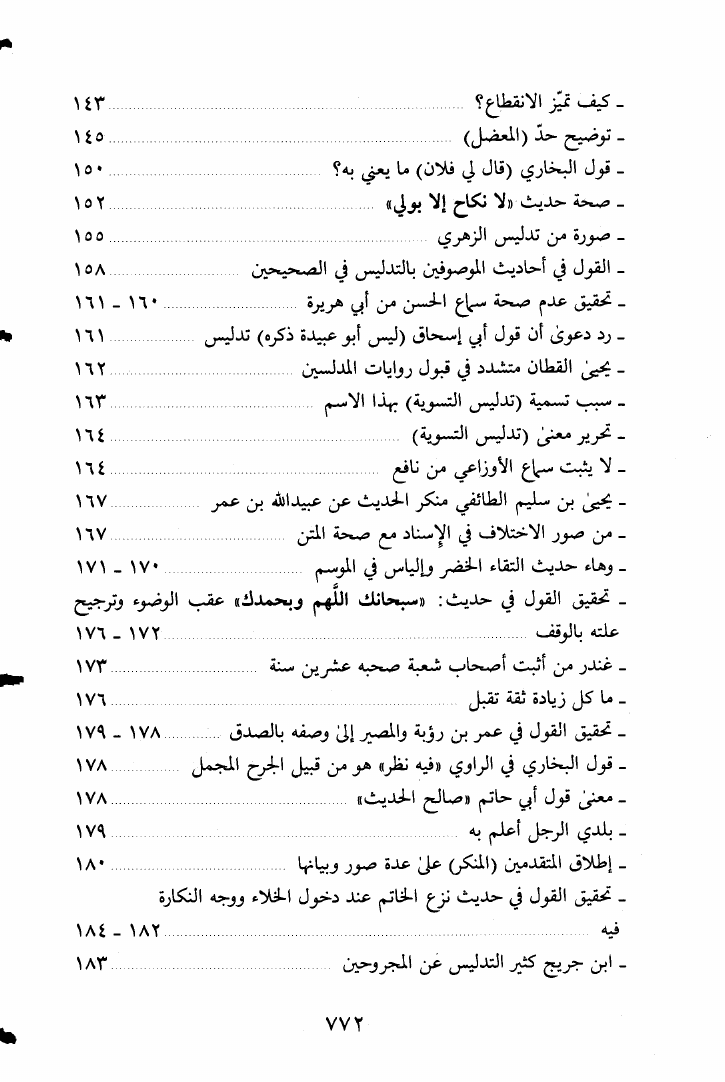 ـ كيف تميّز الانقطاع؟ ........ ١٤٣
ـ توضيح حدّ (المعضل) ........ ١٤٥
ـ قول البخاري (قال لي فلان) ما يعني به؟ ........ ١٥٠
ـ صحة حديث «لا نكاح إلا بولي» ........ ١٥٢
ـ صورة من تدليس الزهري ........ ١٥٥
ـ القول في أحاديث الموصوفين بالتدليس في الصحيحين ........ ١٥٨
ـ تحقيق عدم صحة سماع الحسن من أبي هريرة ........ ١٦٠ ـ ١٦١
ـ رد دعوىٰ أن قول أبي إسحاق (ليس أبو عبيدة ذكره) تدليس ........ ١٦١
ـ يحيىٰ القطان متشدد في قبول روايات المدلسين ........ ١٦٢
ـ سبب تسمية (تدليس التسوية) بهذا الاسم ........ ١٦٣
ـ تحرير معنىٰ (تدليس التسوية) ........ ١٦٤
ـ لا يثبت سماع الأوزاعي من نافع ........ ١٦٤
ـ يحيىٰ بن سليم الطائفي منكر الحديث عن عبيدالله بن عمر ........ ١٦٧
ـ من صور الاختلاف في الإسناد مع صحة المتن ........ ١٦٧
ـ وهاء حديث التقاء الخضر وإلياس في الموسم ........ ١٧٠ ـ ١٧١
ـ تحقيق القول في حديث: «سبحانك اللَّهم وبحمدك» عقب الوضوء وترجيح
علته بالوقف ........ ١٧٢ ـ ١٧٦
ـ غندر من أثبت أصحاب شعبة صحبه عشرين سنة ........ ١٧٣
ـ ما كل زيادة ثقة تقبل ........ ١٧٦
ـ تحقيق القول في عمر بن رؤبة والمصير إلىٰ وصفه بالصدق ........ ١٧٨ ـ ١٧٩
ـ قول البخاري في الراوي «فيه نظر» هو من قبيل الجرح المجمل ........ ١٧٨
ـ معنىٰ قول أبي حاتم «صالح الحديث» ........ ١٧٨
ـ بلدي الرجل أعلم به ........ ١٧٩
ـ إطلاق المتقدمين (المنكر) علىٰ عدة صور وبيانها ........ ١٨٠
ـ تحقيق القول في حديث نزع الخاتم عند دخول الخلاء ووجه النكارة
فيه ........ ١٨٢ ـ ١٨٤
ـ ابن جريج كثير التدليس عن المجروحين ........ ١٨٣
٧٧٢